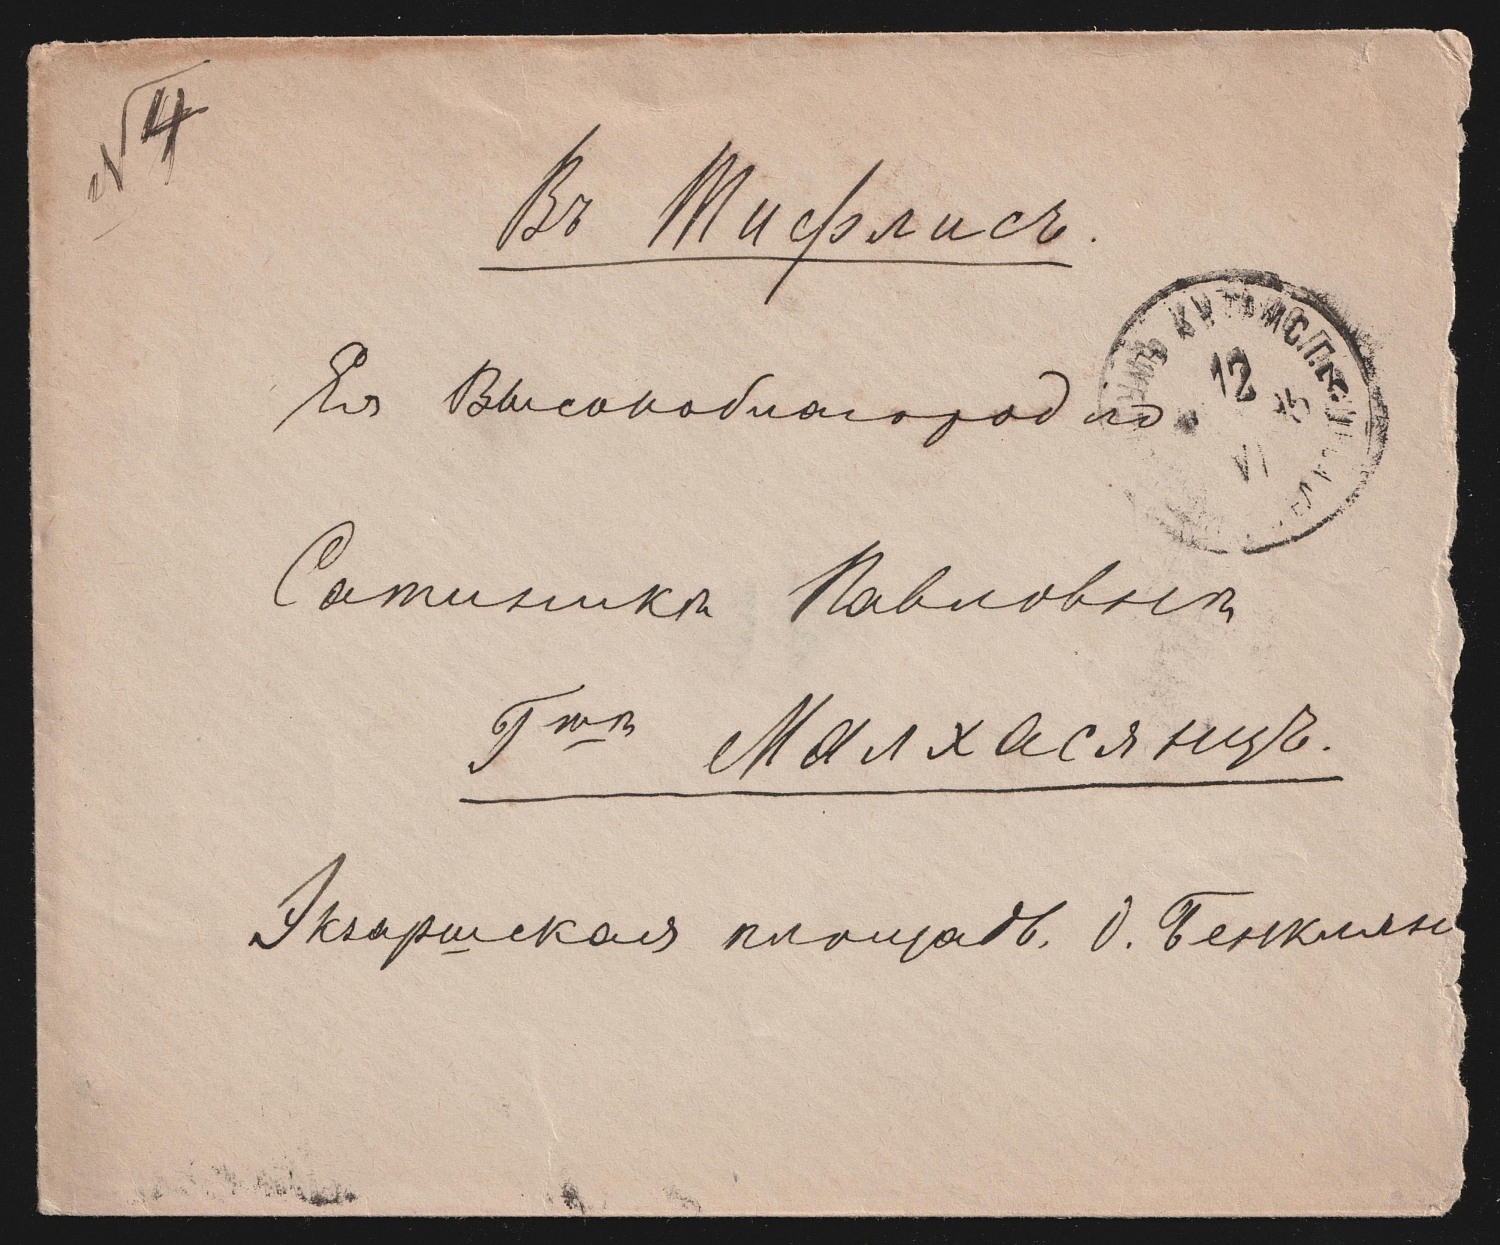 № 4
Въ Тифлисъ.
Ея Высокоблагородію
Сатиникѣ Павловнѣ
Г-жѣ Малхасянцъ.
Экзаршская площадь. д. Бенклян
КУТАИС. П.
12
VI